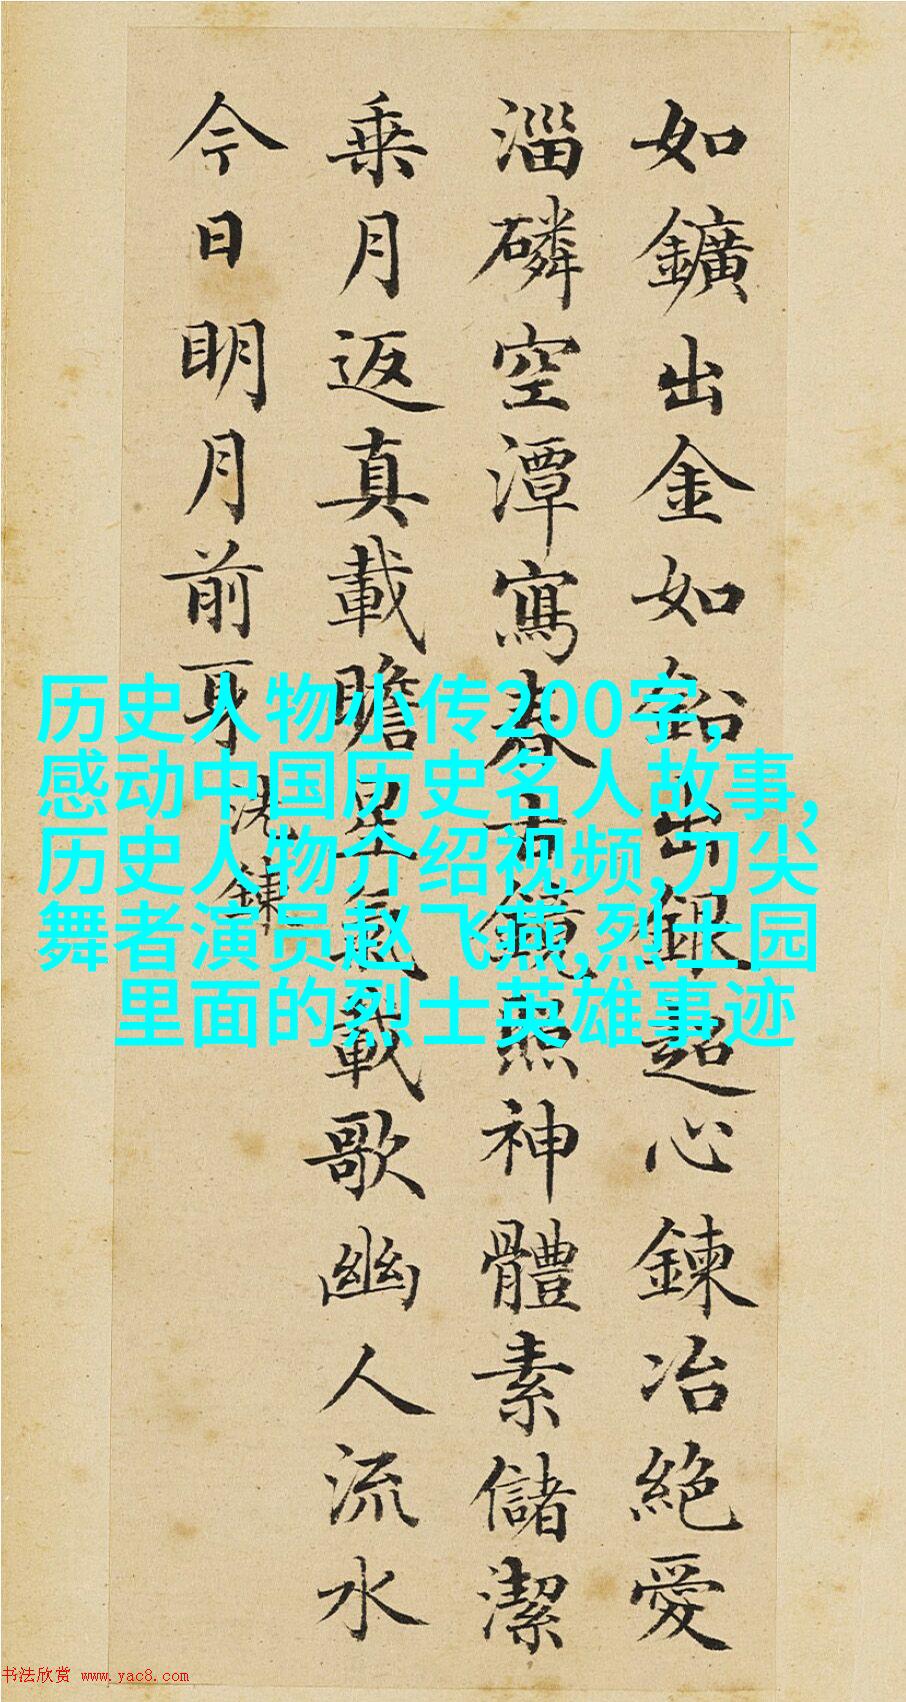 如鑛出金如鉛出銀超心鍊冶絶愛
淄磷空潭寫春古鏡照神體素儲潔
乗月返真載瞻星氣載歌幽人流水
今日明月前身
沈鍊
历史人物小传200字,
感动中国历史名人故事,
历史人物介绍视频,刀尖
舞者演员赵飞燕,烈士园
里面的烈士英雄事迹
书法欣赏 www.yac8.com